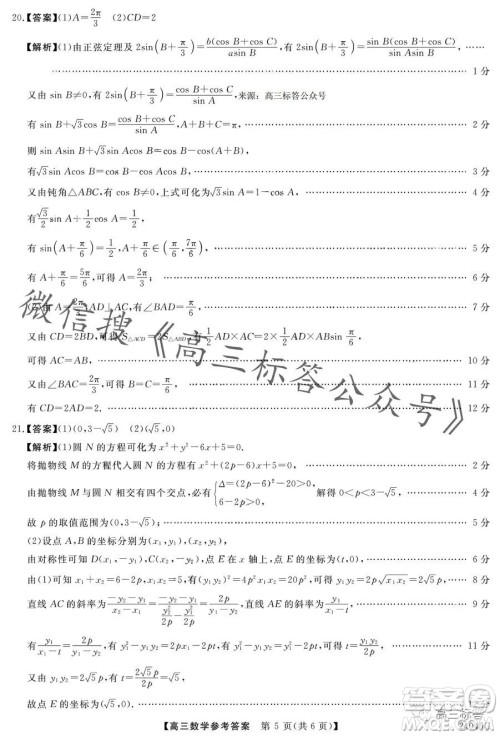 20.【答案】(1)A=2π/3 (2)CD=2
【解析】(1)由正弦定理及 2sin(B+π/3)=b(cos B+cos C)/asin B,有 2sin(B+π/3)=sin B(cos B+cos C)/sin Asin B,
1分
又由 sin B≠0,有 2sin(B+π/3)=cos B+cos C/sin A,来源:高三标答公众号
有 sin B+√3cos B=cos B+cos C/sin A,又由 A+B+C=π, 2分
则 sin Asin B+√3sin Acos B=
有√3sin Acos B=cos B-cos Acos B, 3分
又由钝角△ABC,有 cos B≠0,上式可化为√3sin A=1-cos A, 4分
有√3/2 sin A+1/2 cos A=1/2,
有 sin(A+π/6)=1/2,A+π/6∈(π/6,7π/6), 5分
有 A+π/6=5π/6,可得 A=2π/3; 6分
AD⊥AC,有∠BAD=π/6, 7分
又由 CD=2BD,可得 S△ACD=2S△ABD,有1/2 AD×AC=2×1/2 AD×ABsin π/6,
可得 AC=AB, 10分
又由∠BAC=2π/3,可得
有 CD=2AD=2. 12分
21.【答案】(1)(0,3-√5) (2)(√5,0)
【解析】(1)圆 N 的方程可化为 x²+y²-6x+5=0.
将抛物线 M 的方程代入圆 N 的方程有 x²+(2p-6)x+5=0, 2分
由抛物线 M 与圆 N 相交有四个交点,必有{Δ=(2p-6)²-20>0, 6-2p>0, 解得 0<p<3-√5,
故 p 的取值范围为(0,3-√5); 5分
(2)设点 A,B 的坐标分别为(x₁,y₁),(x₂,y₂),
由对称性可知 D(x₁,-y₁),C(x₂,-y₂),点 E 在 x 轴上,点 E 的坐标为(t,0), 6分
由(1)可知 x₁+x₂=6-2p,x₁x₂=5,y₁²y₂²=4p²x₁x₂=20p²,可得 y₁y₂=2√5p, 8分
直线 AC 的斜率为 -y₂-y₁/x₂-x₁ = -y₁-y₂/(y₂²/2p-y₁²/2p) = 2p/y₁-y₂,直线 AE 的斜率为 y₁/x₁-t, 9分
有 y₁/x₁-t=2p/y₁-y₂,有 y₁²-y₁y₂=2px₁-2pt,有 y₁²-y₁y₂=y₁²-2pt,可得 t=y₁y₂/2p, 11分
又由 y₁y₂=2√5p,有 t=2√5p/2p=√5,
故点 E 的坐标为(√5,0). 12分
【高三数学参考答案 第 5 页(共 6 页)】
微信搜《高三标答公众号》
高三标答